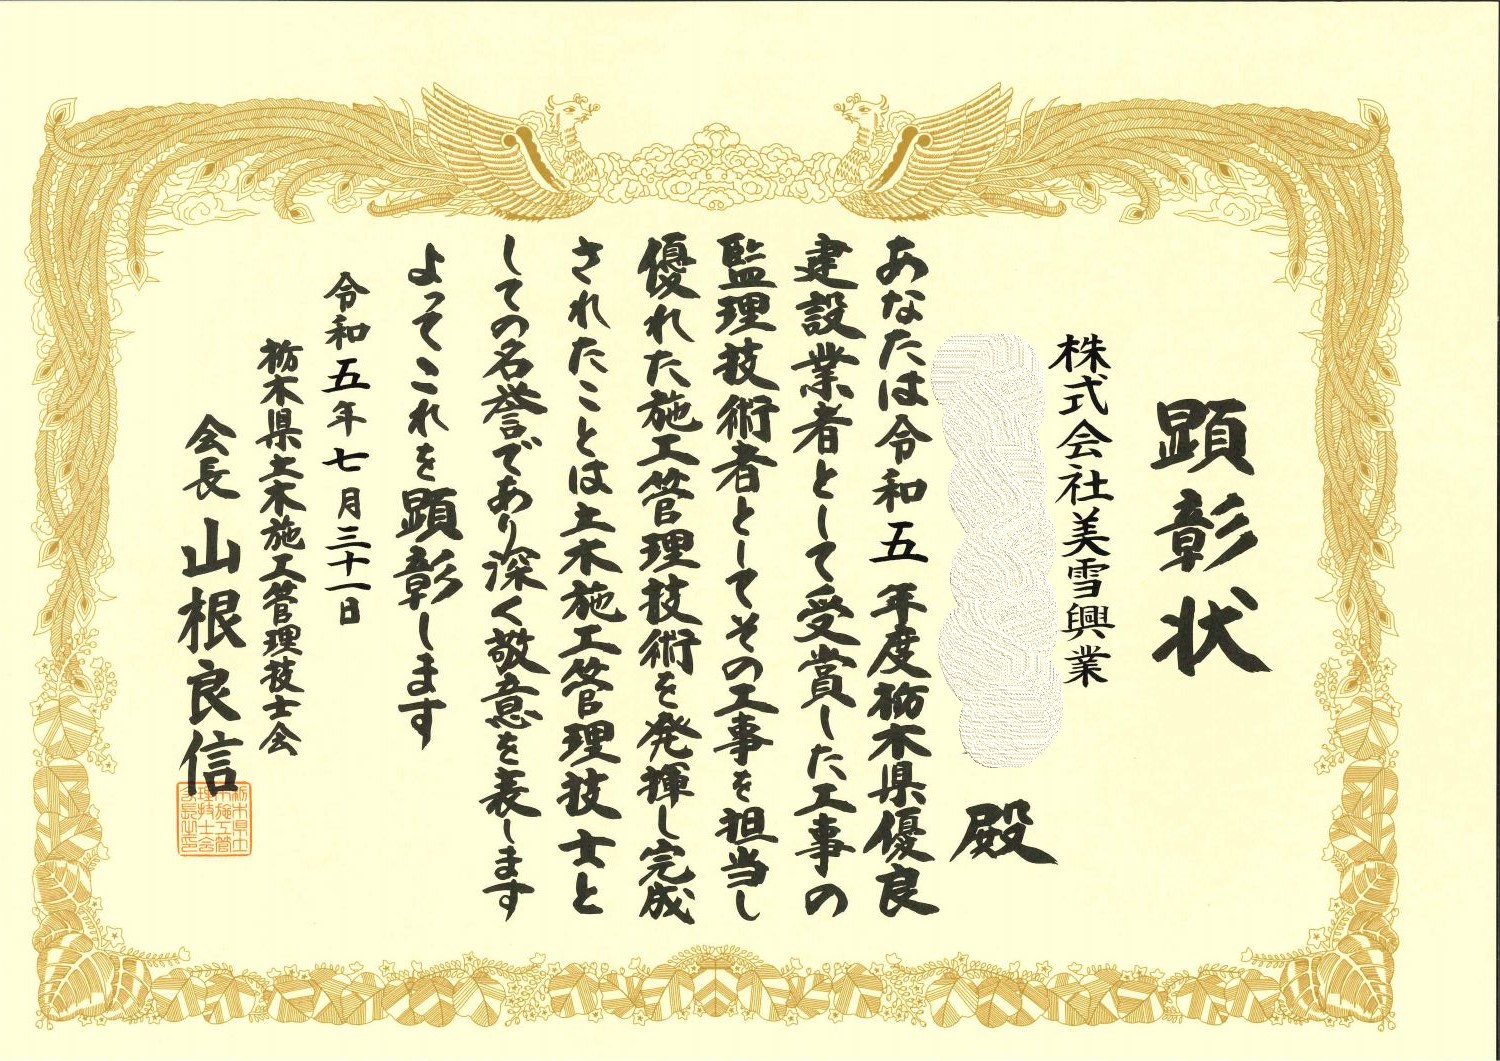 顕彰状
株式会社美雪興業
殿
あなたは令和五年度栃木県優良
建設業者として受賞した工事の
監理技術者としてその工事を担当し
優れた施工管理技術を発揮し完成
されたことは土木施工管理技士と
しての名誉であり深く敬意を表します
よってこれを顕彰します
令和五年七月三十一日
栃木県土木施工管理技士会
会長 山根良信
栃木県土
木施工管
理技士会
会長之印